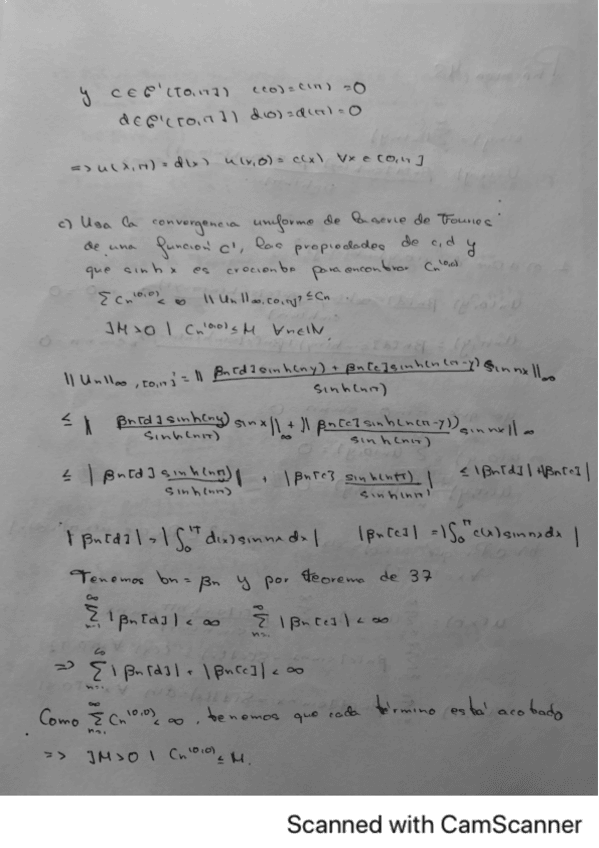 y c ∈ C¹([0,π]) c(0)=c(π)=0
d ∈ C¹([0,π]) d(0)=d(π)=0
=> u(x,π)=d(x) u(x,0)=c(x) ∀x∈[0,π]
c) Usa la convergencia uniforme de la serie de Fourier
de una función C¹, las propiedades de c,d y
que sinh x es creciente para encontrar Cn^(0,0)
∑Cn^(0,0) < ∞ ||Un||∞,[0,π]² ≤ Cn
∃M>0 | Cn^(0,0) ≤ M ∀n∈ℕ
||Un||∞,[0,π]² = || (βn[d] sinh(ny) + βn[c] sinh(n(π-y)))/sinh(nπ) sin nx ||∞
≤ || βn[d] sinh(ny)/sinh(nπ) sin x ||∞ + || βn[c] sinh(n(π-y))/sinh(nπ) sin nx ||∞
≤ | βn[d] sinh(nπ)/sinh(nπ) | + | βn[c] sinh(nπ)/sinh(nπ) | ≤ |βn[d]| + |βn[c]|
|βn[d]| = | ∫₀^π d(x) sin nx dx | |βn[c]| = | ∫₀^π c(x) sin nx dx |
Tenemos bn = βn y por teorema de 37
∑_{n=1}^∞ |βn[d]| < ∞ ∑_{n=1}^∞ |βn[c]| < ∞
=> ∑_{n=1}^∞ |βn[d]| + |βn[c]| < ∞
Como ∑_{n=1}^∞ Cn^(0,0) < ∞, tenemos que cada término está acotado
=> ∃M>0 | Cn^(0,0) ≤ M.
Scanned with CamScanner